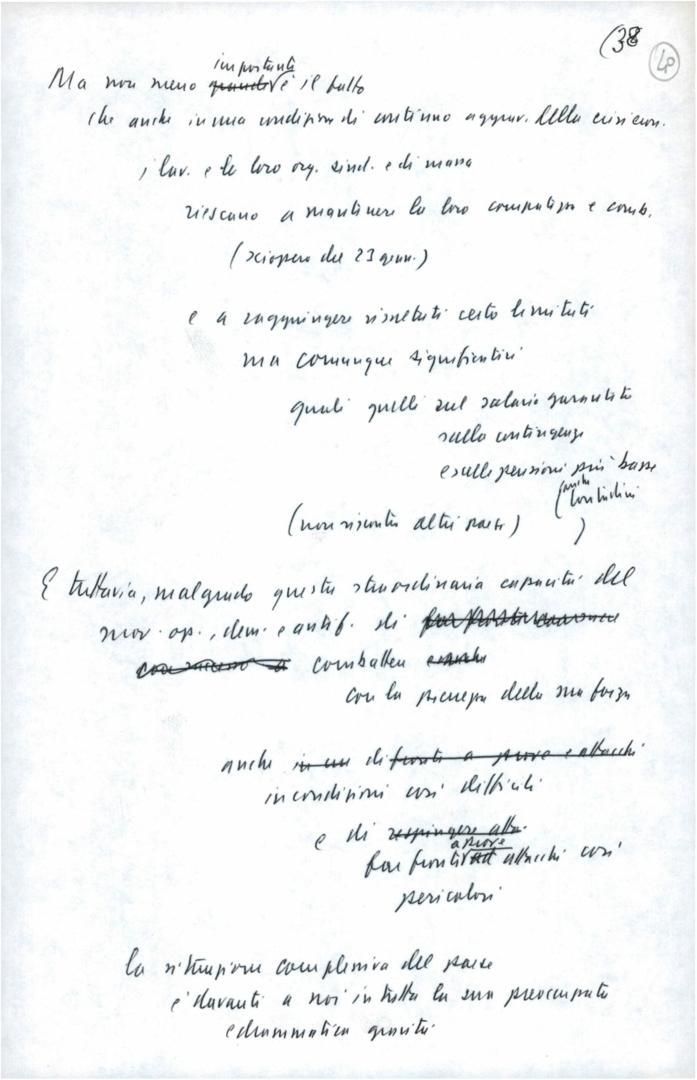 (38
40
importanti
Ma non meno grande è il fatto
che anche in una condizione di continuo aggrav. della crisi econ.
i lav. e le loro org. sind. e di massa
riescano a mantenere la loro compattezza e comb.
(sciopero del 23 genn.)
e a raggiungere risultati certo limitati
ma comunque significativi
quali quelli sul salario garantito
sulla contingenza
e sulle pensioni più basse
(anche
contadini
(non riscontri altri paesi) )
E tuttavia, malgrado questa straordinaria capacità del
mov. op., dem. e antif. di
combattere
con la pienezza della sua forza
anche in un di fronte a prove e attacchi
in condizioni così difficili
e di respingere atta.
a prove
far fronte ad attacchi così
pericolosi
la situazione complessiva del paese
è davanti a noi in tutta la sua preoccupata
e drammatica gravità